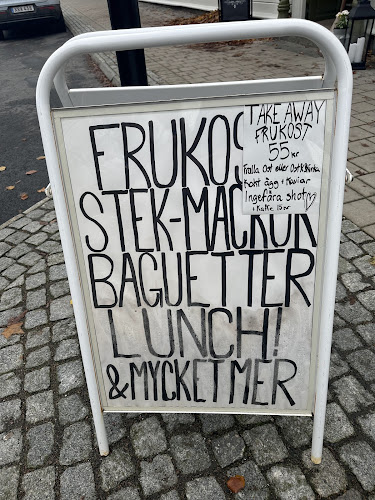 FRUKOS
STEK-MACKOR
BAGUETTER
LUNCH!
& MYCKET MER
TAKE AWAY
FRUKOST
55 kr
Fralla Ost eller Ost & Skinka
Kokt ägg + Kaviar
Ingefära shot
+ Kaffe 15 kr